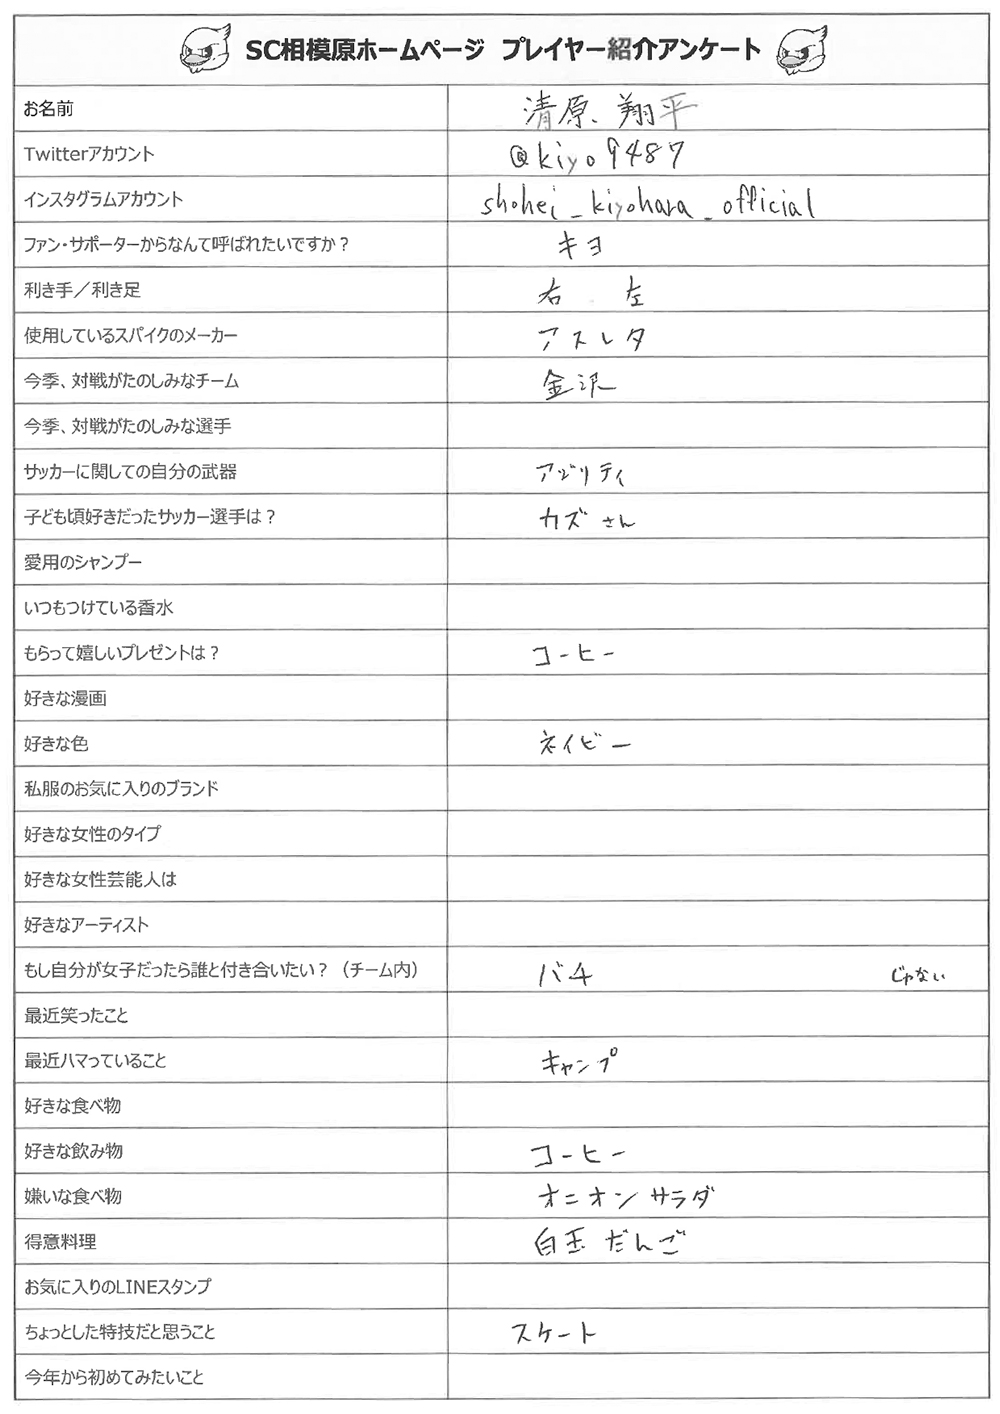 SC相模原ホームページ プレイヤー紹介アンケート
お名前 清原 翔平
Twitterアカウント @kiyo9487
インスタグラムアカウント shohei_kiyohara_official
ファン・サポーターからなんて呼ばれたいですか？ キヨ
利き手／利き足 右 左
使用しているスパイクのメーカー アスレタ
今季、対戦がたのしみなチーム 金沢
今季、対戦がたのしみな選手
サッカーに関しての自分の武器 アジリティ
子ども頃好きだったサッカー選手は？ カズさん
愛用のシャンプー
いつもつけている香水
もらって嬉しいプレゼントは？ コーヒー
好きな漫画
好きな色 ネイビー
私服のお気に入りのブランド
好きな女性のタイプ
好きな女性芸能人は
好きなアーティスト
もし自分が女子だったら誰と付き合いたい？（チーム内） バチ じゃない
最近笑ったこと
最近ハマっていること キャンプ
好きな食べ物
好きな飲み物 コーヒー
嫌いな食べ物 オニオンサラダ
得意料理 白玉だんご
お気に入りのLINEスタンプ
ちょっとした特技だと思うこと スケート
今年から初めてみたいこと